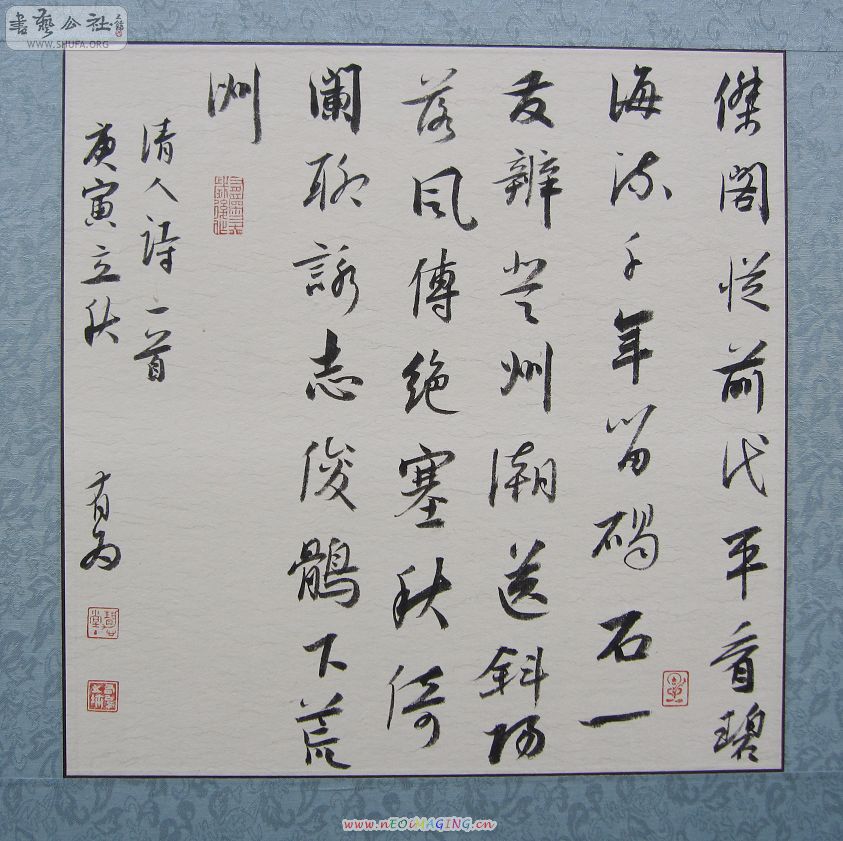 書藝公社
WWW.SHUFA.ORG
傑閣從前代平看碧
海流千年留碣石一
发辨登州潮送斜陽
落風傳絶塞秋倚
闌聊詠志俊鶻下荒
洲
清人詩一首
庚寅立秋 有為
www.nEOiMAGiNG.cn